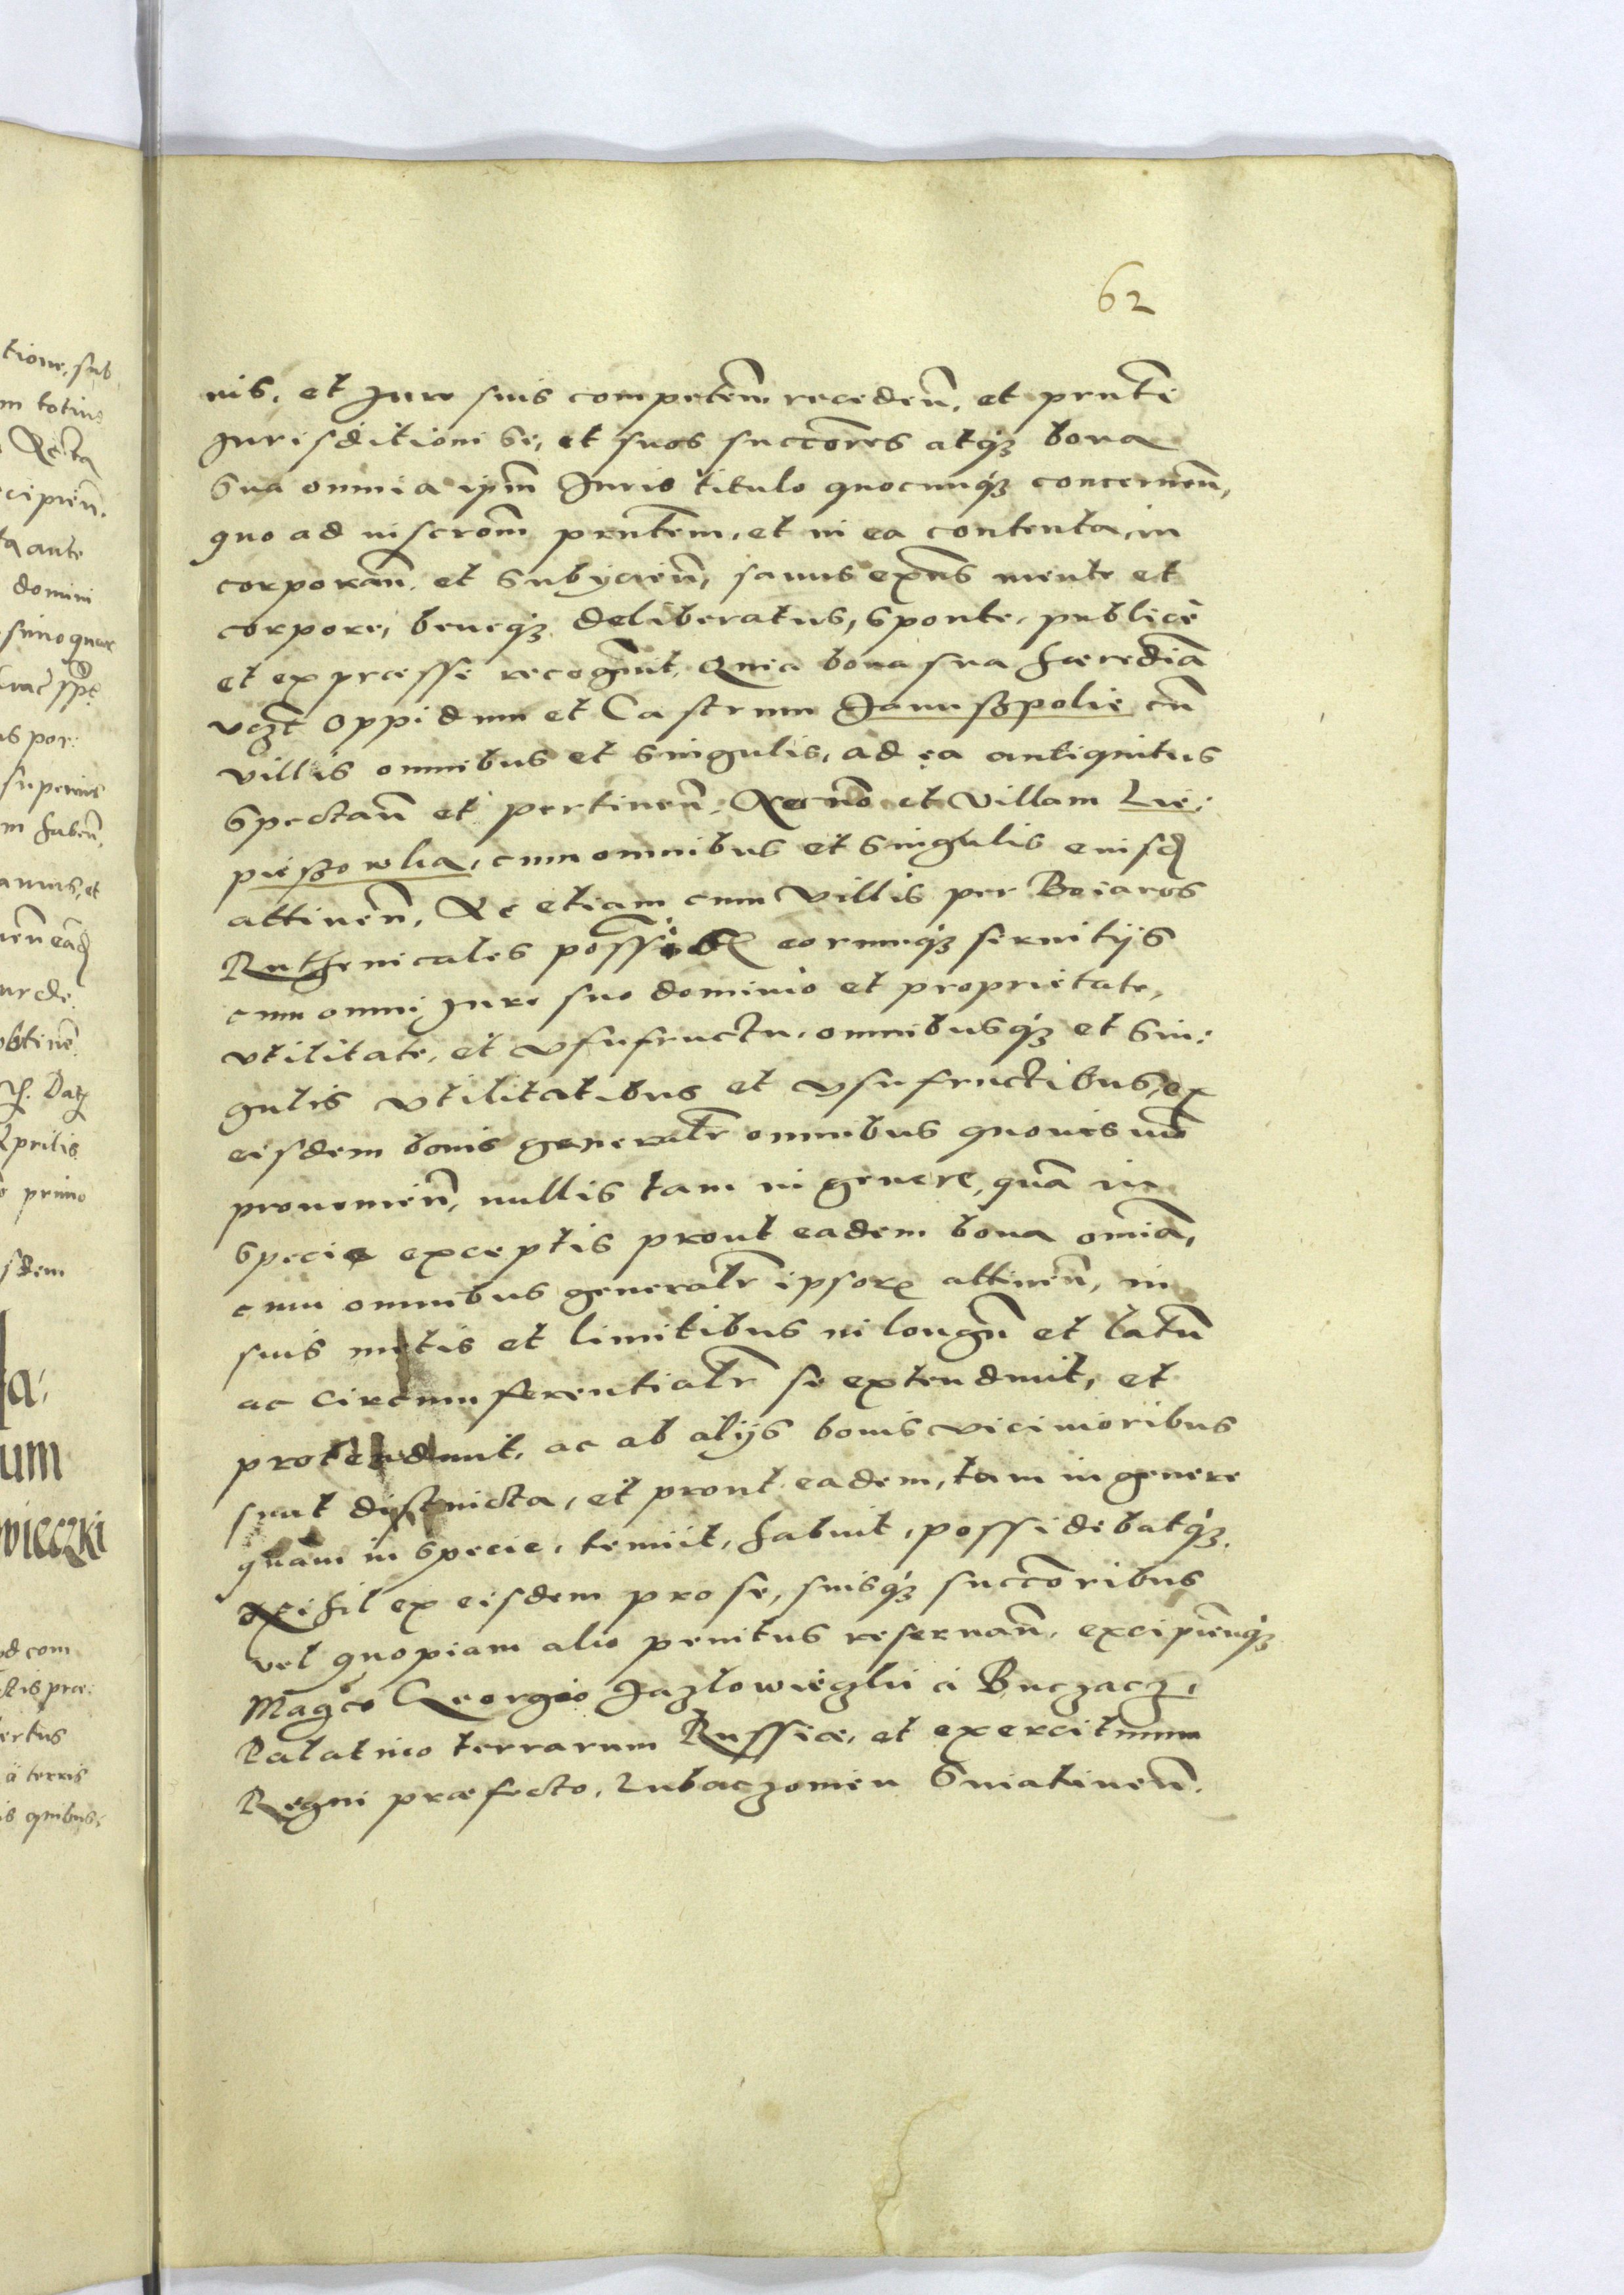 62
tione, sub
m totius
Acta
cipien.
ta ante
domini
simo quar
as por:
superius
m haben,
amus, et
ur de
obtinen
Aprilis
primo
sdem
ia,
um
wieczki
od com
ertus
a terris
is quibus:
nis, et Jure suis competeñ recedeñ, et prñti
Jurisditioni se, et suos succores atqʒ bona
sua omnia ipm Juris titulo quocunqʒ concerneñ,
quo ad inscrom prñtem, et in ea contenta, in
corporañ, et subycieñ, sanus exñs mente et
corpore, beneqʒ deliberatus, sponte, publicè
et expresse recognit, Quia bona sua hærediã
vꝫt Oppidum et Castrum Janusʒpolie cũ
villis omnibus et singulis, ad ea antiquitus
spectañ et pertineñ, Necnõ et Villam Lie:
pieszowka, cum omnibus et singulis eiusd
attineñ, Ac etiam cum Villis per Boiaros
Ruthenicales possess eorumqʒ seruitijs
cum omni Jure suo dominio et proprietate,
vtilitate, et vsufructu, omnibusqʒ et sin:
gulis vtilitatibus et vsufructibus, ex
eisdem bonis generalr̃ omnibus quouis mõ
prouenieñ, nullis tam in genere, quã in
specie exceptis prout eadem bona omiã,
cum omnibus generalr̃ ipsoꝝ attineñ, in
suis metis et limitibus in longũ et latũ
ac circumferentialr̃ se extendunt, et
protendunt, ac ab alijs bonis vicinioribus
sunt distincta, et prout eadem, tam in genere
quam in specie, tenuit, habuit, possidebatqʒ,
Nihil ex eisdem pro se, suisqʒ succoribus
vel quopiam alio penitus reseruañ, excipieñqʒ
Magco Georgio Jazlowieczki ā Buczacz,
Palatino terrarum Russiæ, et exercituum
Regni præfecto, Lubaczouien Sniatineñ.